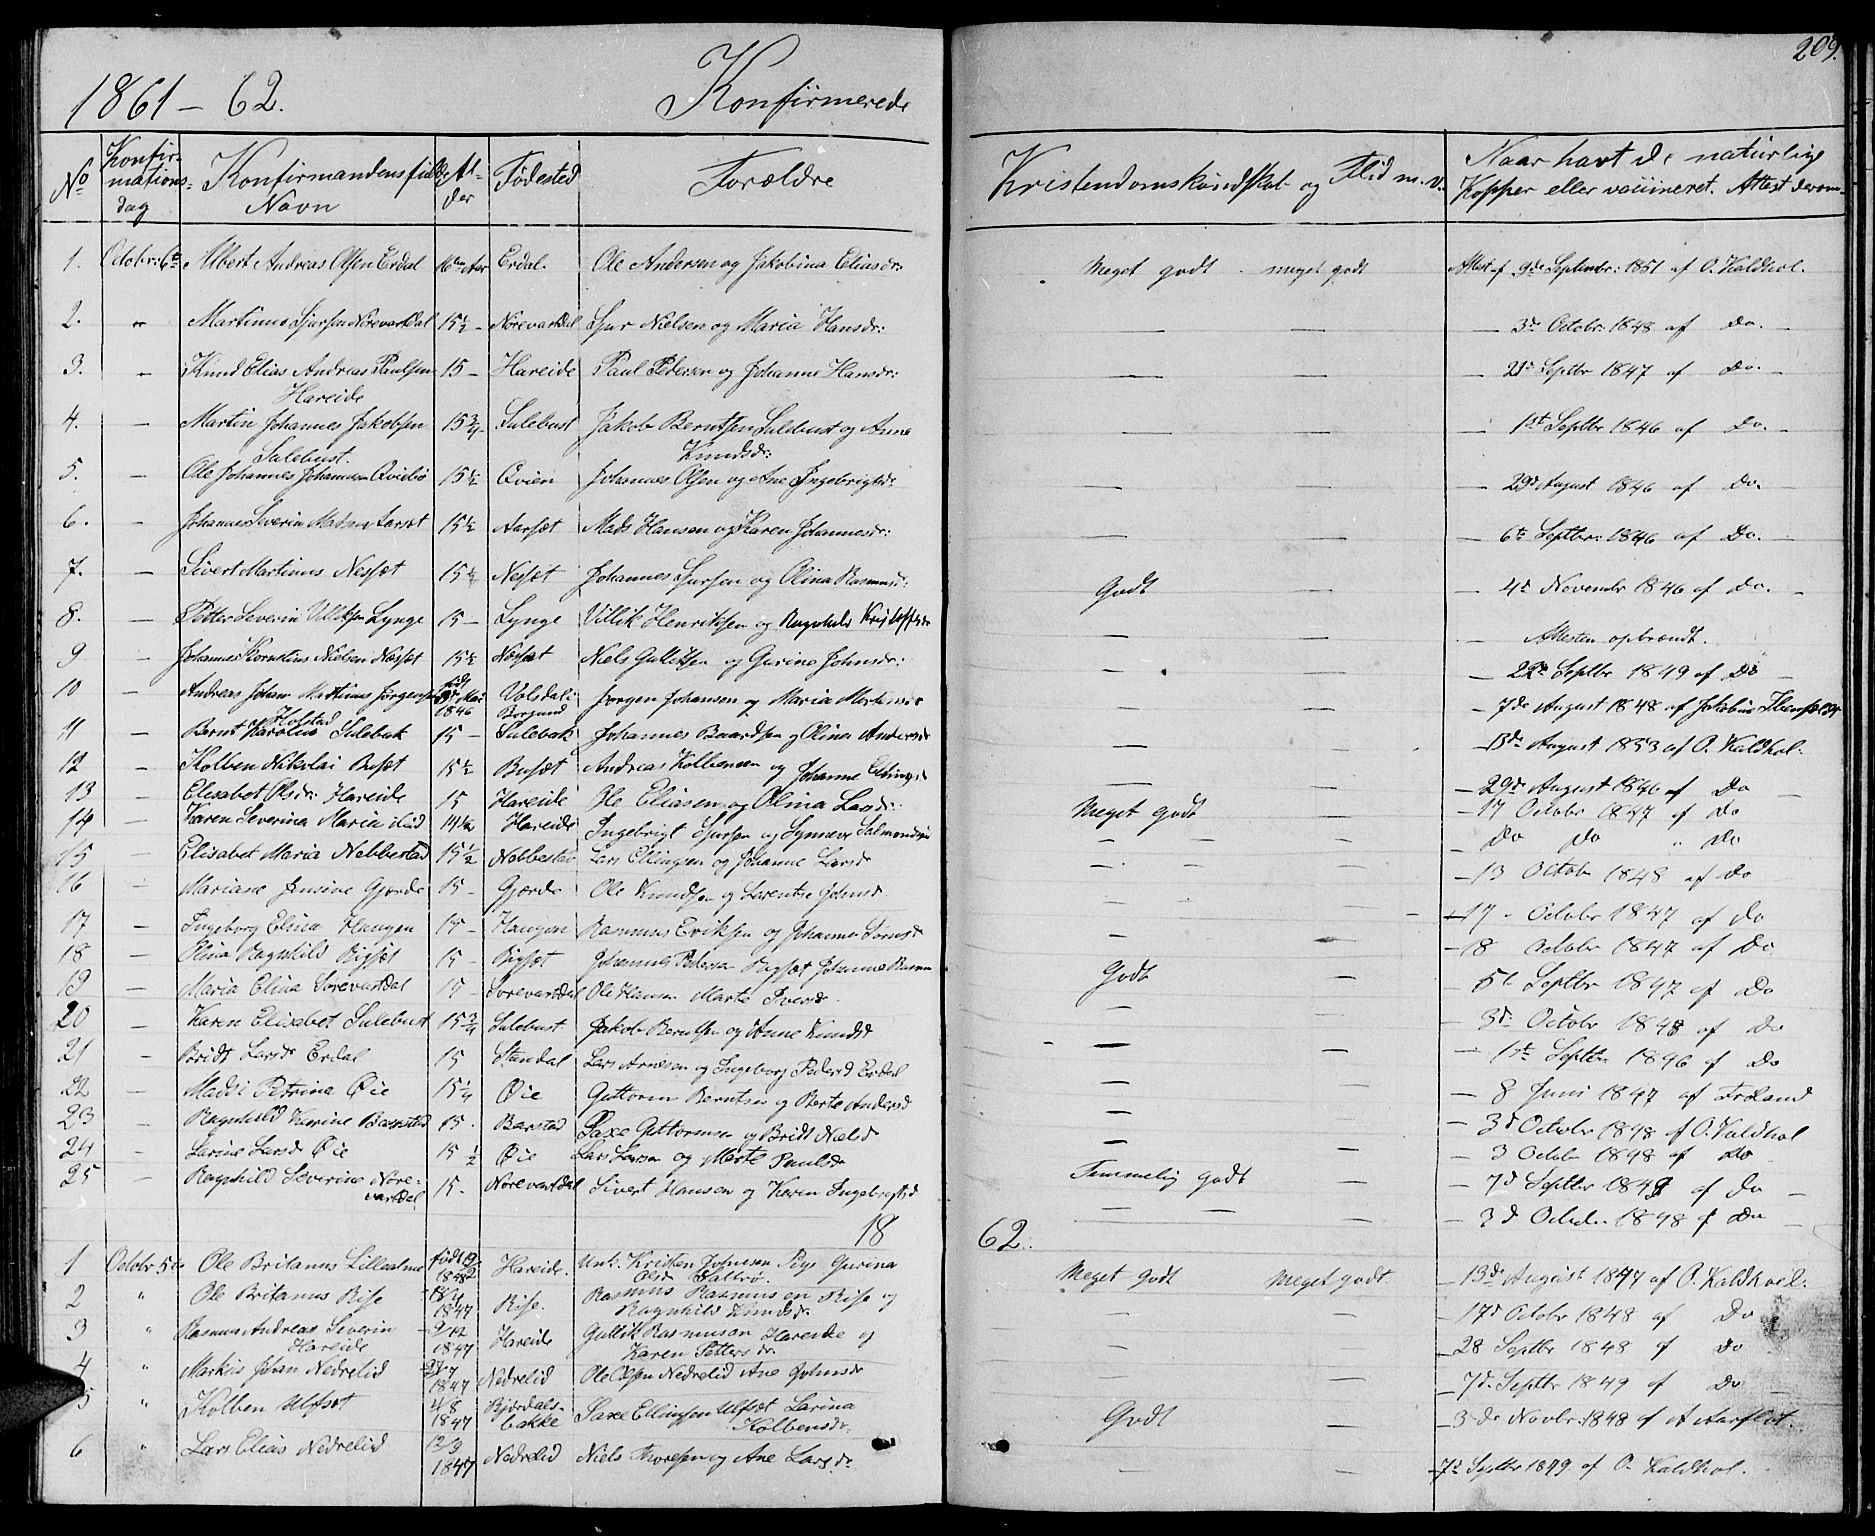 209.
1861 – 62. Konfirmerede
No Konfirmationsdag Konfirmandens fulde Navn Alder Fødested Forældre Kristendomskundskab og Flid m.v. Naar havt de naturlige Kopper eller vaccineret. Attest derom
1. Octobr: 6te Albert Andreas Olsen Erdal 16 Aar Erdal. Ole Andersen og Jakobina Eliasdr: Meget godt. meget godt Attest af 9de Septembr: 1851 af O. Kaldhol.
2. " Martinus Sjursen Nørevartdal 15½ – Nørevartdal Sjur Nielsen og Maria Hansdr: — — — 3de Octobr: 1848 af Do. –
3. – Knud Elias Andreas Paulsen Hareide 15 – Hareide Paul Pedersen og Johanne Hansdr: — — — 21de Septbr 1847 af Do. –
4. – Martin Johannes Jakobsen Sulebust. 15¾ – Sulebust Jakob Berntsen Sulebust og Anne Knudsdr: — — — 1st Septbr 1846 af Do. –
5. – Ole Johannes Johannesen 15½ Qvien Johannes Olsen og Ane Ingebrigtsdr — — — 29de August 1846 af Do.
6. – Johannes Severin Madsen Aarset 15½ Aarsæt Mads Hansen og Karen Johannesdr: — — — 6te Septbr: 1846 af Do.
7. – Sivert Martinus Nessæt 15½ Nessæt Johannes Sjursen og Olina Rasmusdr: Godt — — 4de Novembr 1846 af Do. –
8. – Petter Severin Villiksen Lynge 15 – Lynge Villik Henriksen og Ragnhild — — – Attesten opbrændt.
9 – Johannes Kornelius Nielsen Næsset 15½ Næssæt Niels Gulliksen og Gurine Johnsdr: — — – 22de Septbr 1849 af Do
10 – Andreas Johan Martinus Jørgensen Holstad født Mai 1846 Volsdal: Borgund Jørgen Johansen og Maria — — – 7de August 1848 af Jakobus
11 – Bernt Karolus Sulebak 15 – Sulebak Johannes Baardsen og Olina Andersdr — — – 13de August 1853 af O. Kaldhol.
12 – Kolben Nikolai Busæt 15½ Busæt Andreas Kolbensen og Johanne — — – 29de August 1846 af Do
13 – Elisabet Olsdr: Hareide 15 Hareide Ole Eliasen og Olina Larsdr: Meget godt — – 17 Octobr 1847 af Do
14 – Karen Severina Maria 14½ Hareide Ingebrigt Sjursen og Synneve — — – Do Do " Do
15 – Elisabet Maria Nebbestad 15½ Nebbestad Lars Ellingsen og Johanne Larsdr — — – 13 Octobr 1848 af Do
16 – Mariane Jensine Gjerde 15 – Gjærde Ole Knudsen og Lorentse Johnsd. — — – 17. Octobr 1847 af Do
17 – Ingeborg Elina Haugen 15 – Haugen Rasmus Eriksen og Johanne — — – 18 Octobr 1847 af Do
18 – Elina Ragnhild Rigsæt 15 – Rigsæt Johannes Pedersen Johanne Godt — – 5te Septbr 1847 af Do
19 – Maria Elina Sørevartdal 15 – Sørevartdal Ole Hansen Marte Iversdr. — — – 3de Octobr 1848 af Do
20 – Karen Elisabet Sulebust 15¾ Sulebust Jakob Berntsen og Anne Knudsd — — – 1ste Septbr 1846 af Do
21 – Bridt Larsdr Erdal 15 Standal Lars Arnesen og Ingeborg Pedersd Erdal — — – 8 Juni 1847 af Frøland
22 – Maddi Petrina Øie 15¼ Øie Guttorm Berntsen og Berte Andersd — — – 3d Octobr 1848 af O. Kaldhol
23 – Ragnhild Karine Barstad 15. Barstad Saxe Guttormsen og Bridt Nielsdr — — – 3 Octobr 1848 af Do
24 – Larine Larsd Øie 15½ Øie Lars Larsen og Marte Paulsdr Temmelig godt — – 7d Septbr 1849 af Do –
25 – Ragnhild Severine Nørevartdal 15. Nørevartdal Sivert Hansen og Karen Ingebrigtsd — — – 3d Octobr 1848 af Do
18 62.
1 Octobr 5te Ole Britanus Lillealme født 9/2 1848 Hareide. Unk. Kristen Johnsen Pige Gurina Olsdr Saltrø. Meget godt Meget godt. – 13de August 1847 af O. Kaldhol.
2 " Ole Britanus Rise 1847 Rise. Rasmus Rasmusen Rise og Ragnhild Knudsdr. — — – 17d Octobr 1848 af Do
3 " Rasmus Andreas Severin Hareide 9/12 1847 Hareide Gullik Rasmusen Hareide og Karen Pettersdr. — — – 28 Septbr 1848 af Do
4 " Markus Johan Nedrelid 1847 Nedrelid Ole Olsen Nedrelid Ane Johnsdr — — – 7d. Septbr 1849 af Do –
5 " Kolben Ulfsæt 4/8 1847 Bjørdalsbakke Saxe Ellingsen Ulfsæt Larina Kolbensdr. Godt — – 3de Novbr: 1848 af A Aarflot.
6 " Lars Elias Nedrelid 12/3 1847 Nedrelid Niels Thoresen og Ane Larsdr — — – 7de Septbr 1849 af O. Kaldhol.